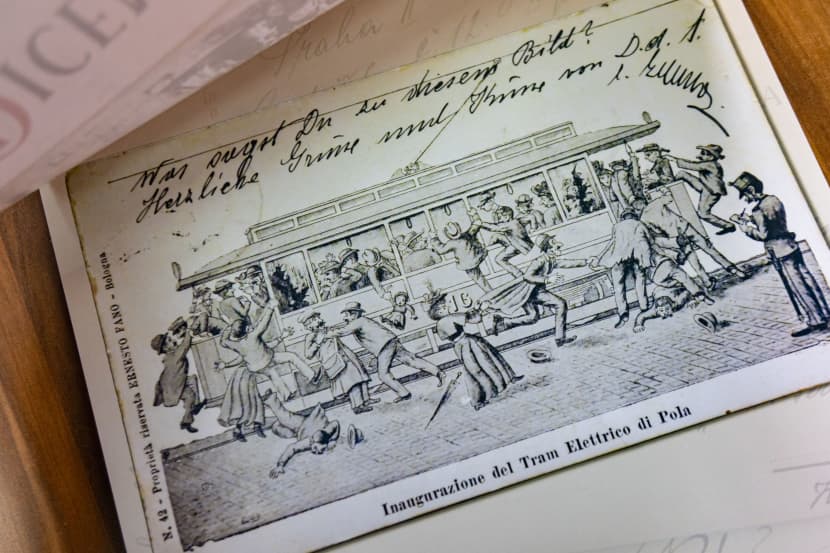 DICE
Praha
Was sagst Du zu diesem Bild?
Herzliche Grüsse und Küsse von D. d. l.
16
Inaugurazione del Tram Elettrico di Pola
N. 42 - Proprietà riservata ERNESTO FANO - Bologna